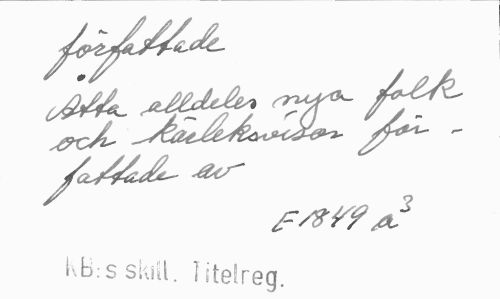 författade
Åtta alldeles nya folk
och kärleksvisor för-
fattade av
E 1849 a³
KB:s skill. Titelreg.